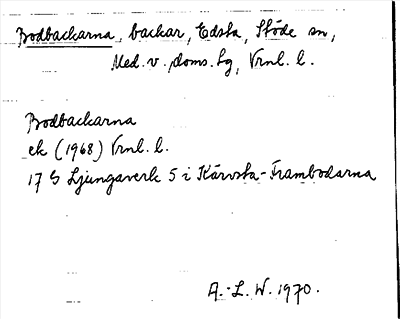 Bodbackarna, backar, Edsta, Stöde sn,
Med. v. doms. sg, Vrnl. l.
Bodbackarna
ek (1968) Vrnl. l.
17 G Ljungaverk 5 i Kärvsta-Frambodarna
A.-L. W. 1970.